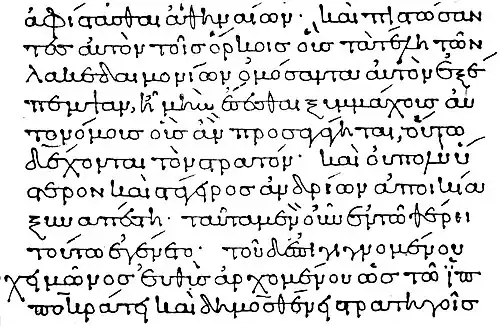 ἀφίστασθαι ἀθηναίων· καὶ πιστώσαν
τές αὐτὸν τοῖσ ὅρκοισ οἷσ τὰ τέλη τῶν
λακεδαιμονίων ὀμόσαντα αὐτὸν ἐξέ
πεμψαν, ἦ μὴν ἔσεσθαι ξυμμάχοισ αὐ
τονόμοισ οἷσ ἂν προσάγηται, οὕτω
δέχονται τὸν στρατόν· καὶ οὐπολὺ ὕ
στερον καὶ στάγειροσ ἀνδρίων ἀποικία
ξυναπέστη· ταῦτα μὲν οὖν ἐν τῶ θέρει
τούτω ἐγένετο· τοῦ δ' ἐπιγιγνομένου
χειμῶνοσ εὐθὺσ ἀρχομένου ὡσ τῶ ἱπ
ποκράτει καὶ δημοσθένει στρατηγοῖσ